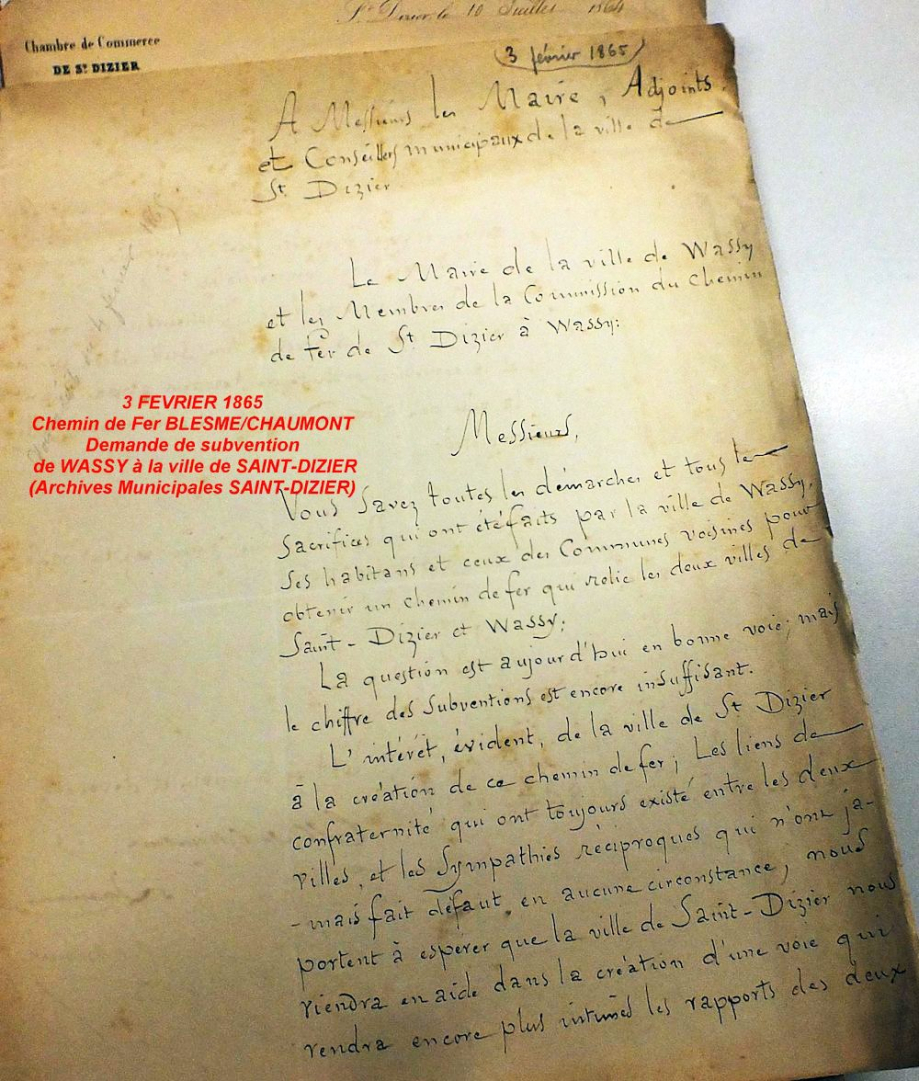 St Dizier, le 10 Juillet 1864
Chambre de Commerce
DE St. DIZIER
3 février 1865
A Messieurs les Maire, Adjoints
et Conseillers municipaux de la ville de
St. Dizier
Le Maire de la ville de Wassy
et les Membres de la Commission du Chemin
de fer de St Dizier à Wassy:
3 FEVRIER 1865
Chemin de Fer BLESME/CHAUMONT
Demande de subvention
de WASSY à la ville de SAINT-DIZIER
(Archives Municipales SAINT-DIZIER)
Messieurs,
Vous savez toutes les démarches et tous les
sacrifices qui ont été faits par la ville de Wassy,
ses habitans et ceux des Communes voisines pour
obtenir un chemin de fer qui relie les deux villes de
Saint-Dizier et Wassy;
La question est aujourd'hui en bonne voie; mais
le chiffre des subventions est encore insuffisant.
L'intérêt, évident, de la ville de St Dizier
à la création de ce chemin de fer; Les liens de
confraternité qui ont toujours existé entre les deux
villes, et les sympathies réciproques qui n'ont ja-
-mais fait défaut, en aucune circonstance; nous
portent à espérer que la ville de Saint-Dizier nous
viendra en aide dans la création d'une voie qui
rendra encore plus intimes les rapports des deux